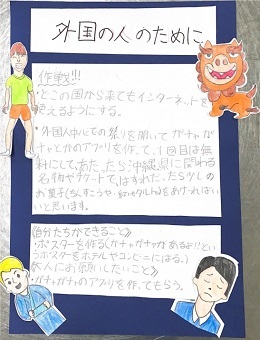 外国の人のために
作戦!!!
・どこの国から来てもインターネットを
使えるようにする。
・外国人中心での祭りを開いてガチャガ
チャとかのアプリを作って、1回目は無
料にして、あたったら沖縄県に関わる
名物やチケートで、はずれた
お菓子(ちんすこうや・紅いもタルト)をあげればい
いと思います。
《自分たちができること》
・ポスターを作る(ガチャガチャがあるよ!!とい
うポスターをホテルやコンビニにはる。)
《大人にお願いしたいこと》
・ガチャガチャのアプリを作てもらう。